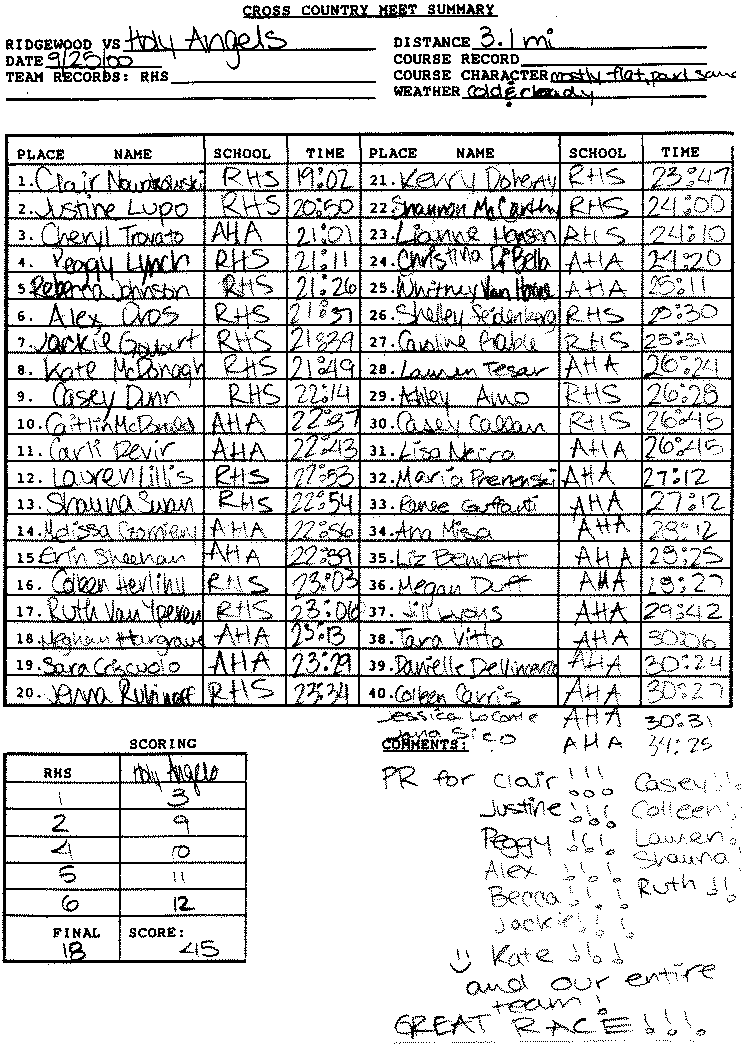 CROSS COUNTRY MEET SUMMARY
RIDGEWOOD VS Holy Angels
DISTANCE 3.1 mi
DATE 9/25/00
COURSE RECORD
TEAM RECORDS: RHS
COURSE CHARACTER mostly flat, pavd sand
WEATHER cold & cloudy
PLACE NAME SCHOOL TIME PLACE NAME SCHOOL TIME
1. Clair RHS 19:02 21. Kerry Doherty RHS 23:47
2. Justine Lupo RHS 20:50 22. Shannon McCarthy RHS 24:00
3. Cheryl Trovato AHA 21:01 23. Lianne Hansen RHS 24:10
4. Peggy Lynch RHS 21:11 24. Christina DiBella AHA 24:20
5. Rebecca Johnson RHS 21:26 25. Whitney Van AHA 25:11
6. Alex Oros RHS 26. Shelley Seidenberg RHS 25:30
7. Jackie RHS 21:39 27. Caroline RHS 25:31
8. Kate McDonagh RHS 21:49 28. Lauren Tesar AHA 26:24
9. Casey Dunn RHS 22:14 29. Ashley Aino RHS 26:28
10. Caitlin McDonald AHA 22:37 30. Casey Callan RHS 26:45
11. Carli Devir AHA 22:43 31. Lisa Neiro AHA 26:45
12. Lauren Lillis RHS 22:53 32. Maria AHA 27:12
13. Shauna Swan RHS 22:54 33. Renee AHA 27:12
14. Melissa AHA 22:56 34. Ana Misa AHA 28:12
15. Erin Sheehan AHA 22:59 35. Liz Bennett AHA 28:25
16. Colleen Herlihy RHS 23:03 36. Megan Duff AHA
17. Ruth Van Yperen RHS 23:06 37. Jill Lyons AHA 29:42
18. Meghan Hargrave AHA 38. Tara Vitto AHA 30:06
19. Sara Criscuolo AHA 23:29 39. Danielle AHA 30:24
20. Jenna Rubinoff RHS 23:34 40. Colleen Carris AHA 30:27
Jessica LoConte AHA 30:31
Sico AHA 34:25
SCORING
COMMENTS:
RHS Holy Angels
1 3
2 9
4 10
5 11
6 12
FINAL SCORE:
18 45
PR for Clair !!! Casey!!!
Justine !!! Colleen!
Peggy !!! Lauren!
Alex !!! Shauna
Becca !!! Ruth !!
Jackie !!!
Kate !!!
and our entire
team!
GREAT RACE!!!